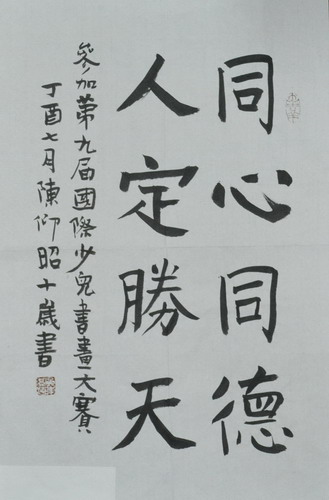 同心同德
人定勝天
參加第九届國際少兒書畫大賽
丁酉七月陳仰昭十歲書